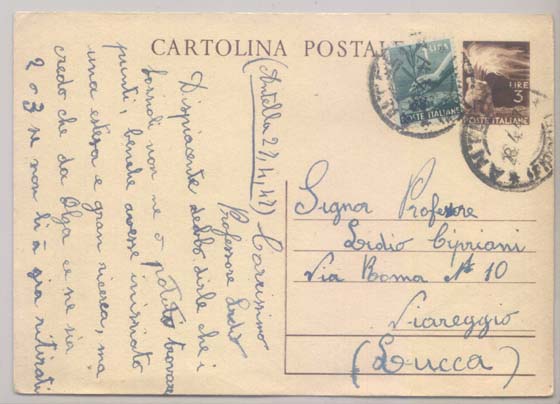 CARTOLINA POSTALE
1 LIRA
POSTE ITALIANE
LIRE
3
POSTE ITALIANE
(Antella 27,4,47)
Carissimo
Professore Lidio
Dispiacente debbo dirle che i
fossili non ne ò potuto trovare
punti, benche avesse iniziato
una estesa e gran ricerca, ma
credo che da Olga ce ne sia
2 o 3 se non li à gia ritirati
Signor Professore
Lidio Cipriani
Via Roma N° 10
Viareggio
(Lucca)